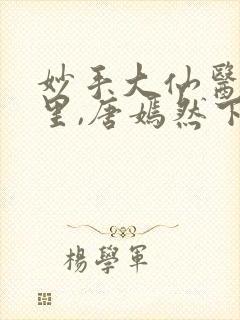 妙手大仙醫
里,唐嫣然下
楊學軍